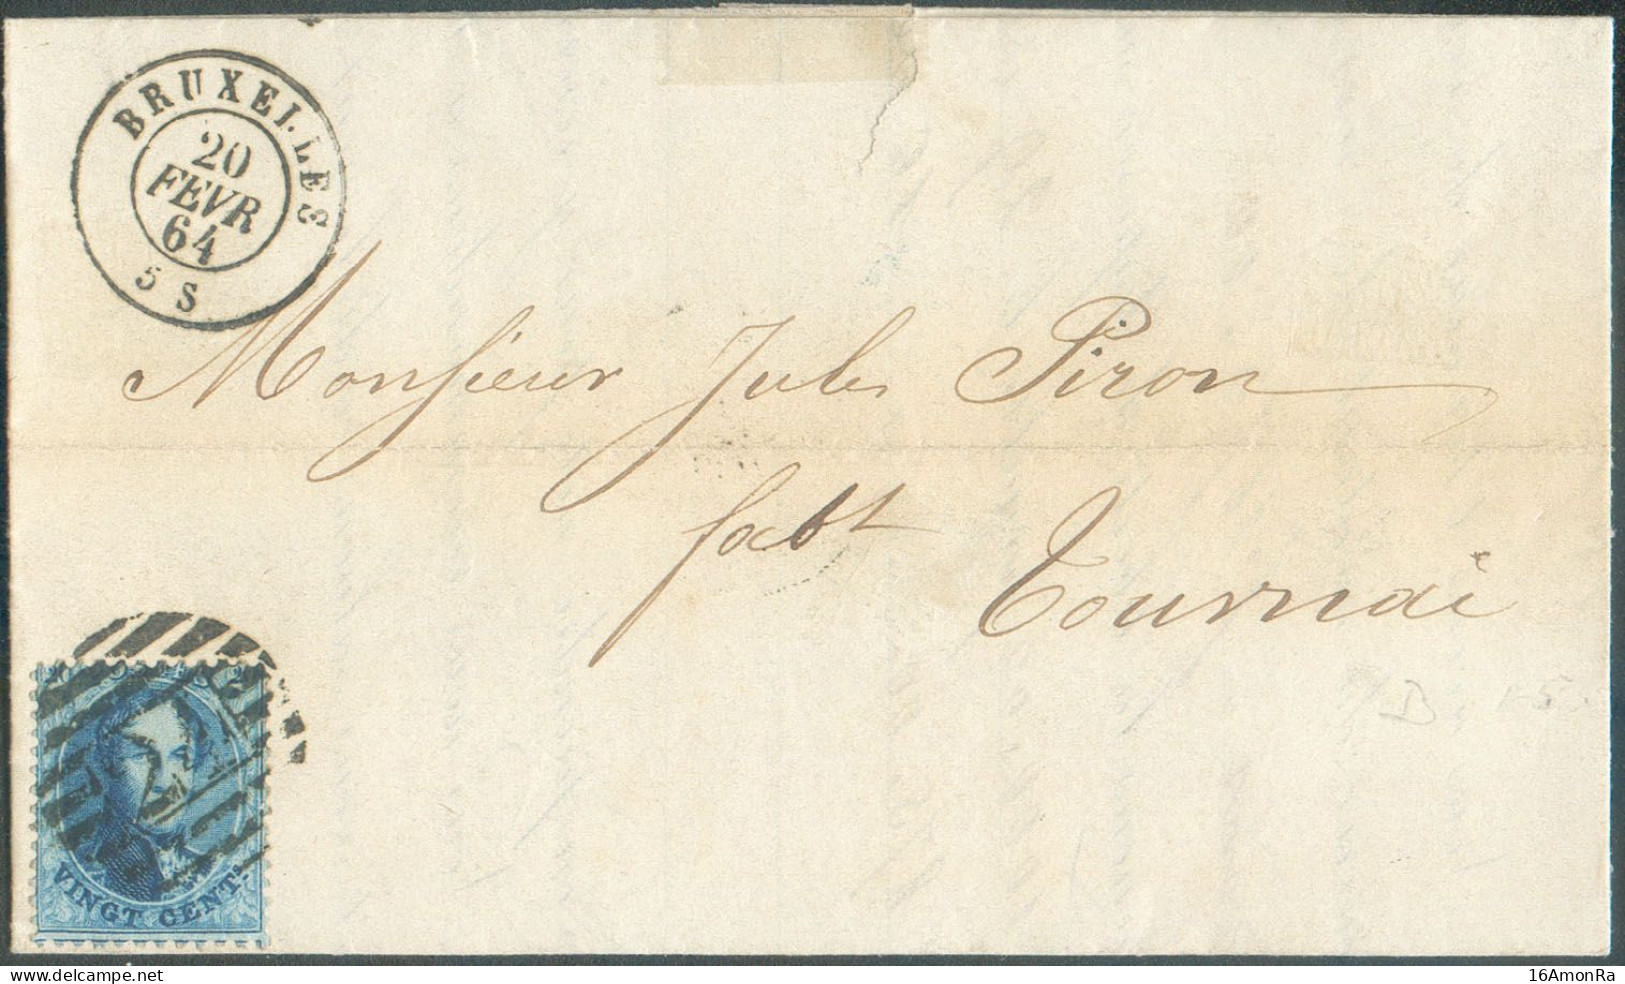 BRUXELLES
20
FEVR
64
5 S
Monsieur Jules Piron
fabt
Tournai
VINGT CENTS
16AmonRa